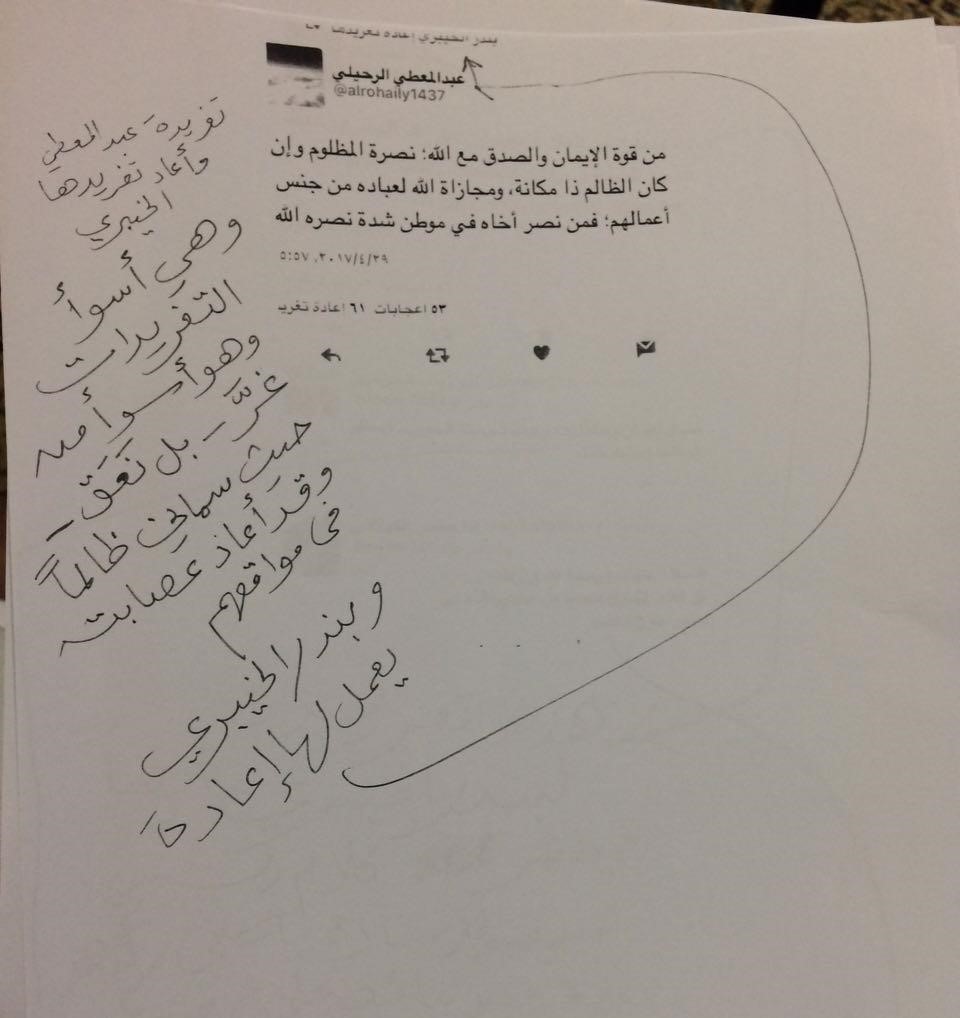 بندر الخيبري إعادة تغريدها
عبدالمعطي الرحيلي
@alrohaily1437
من قوة الإيمان والصدق مع الله؛ نصرة المظلوم وإن
كان الظالم ذا مكانة، ومجازاة الله لعباده من جنس
أعمالهم؛ فمن نصر أخاه في موطن شدة نصره الله
٢٠١٧/٤/٢٩، ٥:٥٧
٥٣ اعجابات ٦١ اعادة تغريد
تغريدة عبد المعطي
وأعاد تغريدها
الخيبري
وهي أسوأ
التغريدات
وهو أسوأ من
غرَّد بل نَعَقَ
حيث سماني ظالماً
وقد أعاذ عصابته
في مواقفهم
وبندر الخيبري
يعمل لها إعادة